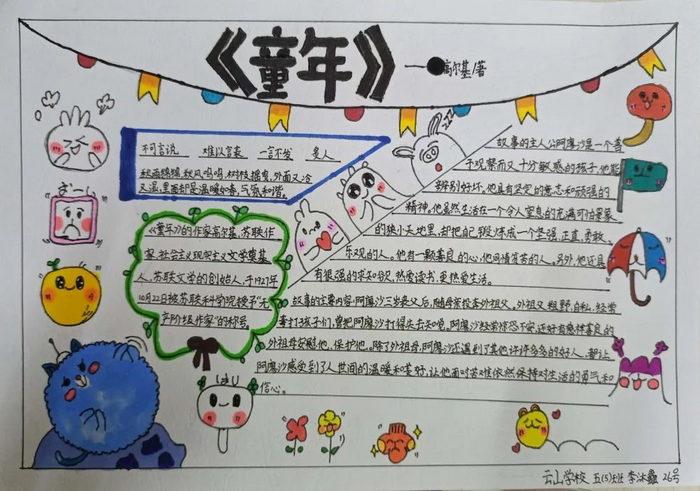 《童年》
——高尔基/著
不可言说 难以言表 一言不发
秋雨绵绵,秋风呜呜,树枝摇曳,外面又冷
又湿,里面却是温暖如春,气氛和谐。
《童年》的作家高尔基,苏联作
家,社会主义现实主义文学奠基
人,苏联文学的创始人,于1927年
10月22日被苏联科学院授予"无
产阶级作家"的称号。
故事的主人公阿廖沙是一个善
于观察而又十分敏感的孩子,他能
辨别好坏,他具有坚定的意志和顽强的
精神。他虽然生活在一个令人窒息的充满可怕景象
的狭小天地里,却把自己锻炼成一个坚强、正直、勇敢、
乐观的人。他有一颗善良的心,他同情穷苦的人。另外,他还具
有很强的求知欲,热爱读书,更热爱生活。
故事的主要内容:阿廖沙三岁丧父后,随母亲投奔外祖父。外祖父粗野、自私,经常
毒打孩子们,曾把阿廖沙打得失去知觉,阿廖沙经常惊恐不安,还好有慈祥善良的
外祖母安慰他、保护他。除了外祖母,阿廖沙还遇到了其他许许多多的好人,都让
阿廖沙感受到了人世间的温暖和美好,让他面对苦难依然保持对生活的勇气和
信心。
云山学校 五(5)班 李沐 26号